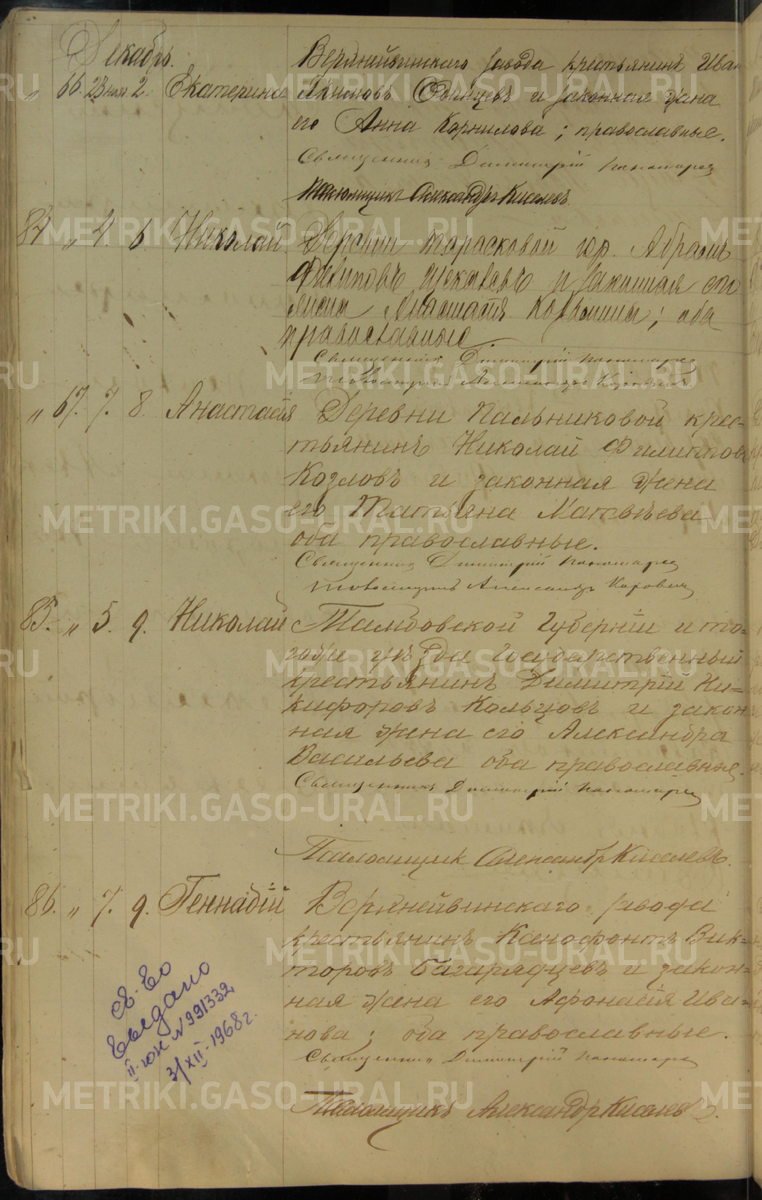 Декабрь.
„ 66. 28 ноя 2. Екатерина Верхнейвинскаго завода крестьянинъ Иван
и законная жена
его Анна Корнилова; православные.
Священникъ Димитрій Пономарев
Псаломщикъ Александръ Киселевъ
84 „ 4. 6 Николай Деревни Тарасковой кр. Абрамъ
и законная
оба
православные.
Священникъ Димитрій Пономарев
Псаломщикъ Александръ
„ 67. 7. 8. Анастасія Деревни Пальниковой крес-
тьянинъ Николай Филиппов
Козловъ и законная жена
его Татьяна Матвѣева
оба православные.
Священникъ Димитрій Пономарев
Псаломщикъ Александръ
85. „ 5. 9. Николай Тамбовской губерніи и то-
гоже уѣзда государственный
крестьянинъ Димитрій Ни-
кифоровъ Кольцовъ и закон
ная жена его Александра
Васильева оба православные.
Священникъ Димитрій Пономарев
Псаломщикъ Александръ Киселевъ.
86. „ 7. 9. Геннадій Верхнейвинскаго завода
крестьянинъ Ксенофонтъ Вик-
торовъ Багарядцевъ и закон-
ная жена его Афонасія Ива-
нова; оба православные.
Священникъ Димитрій Пономарев
Псаломщикъ Александръ Киселевъ.
св-во
выдано
II-юк №991332
31/XII-1968 г.
METRIKI.GASO-URAL.RU